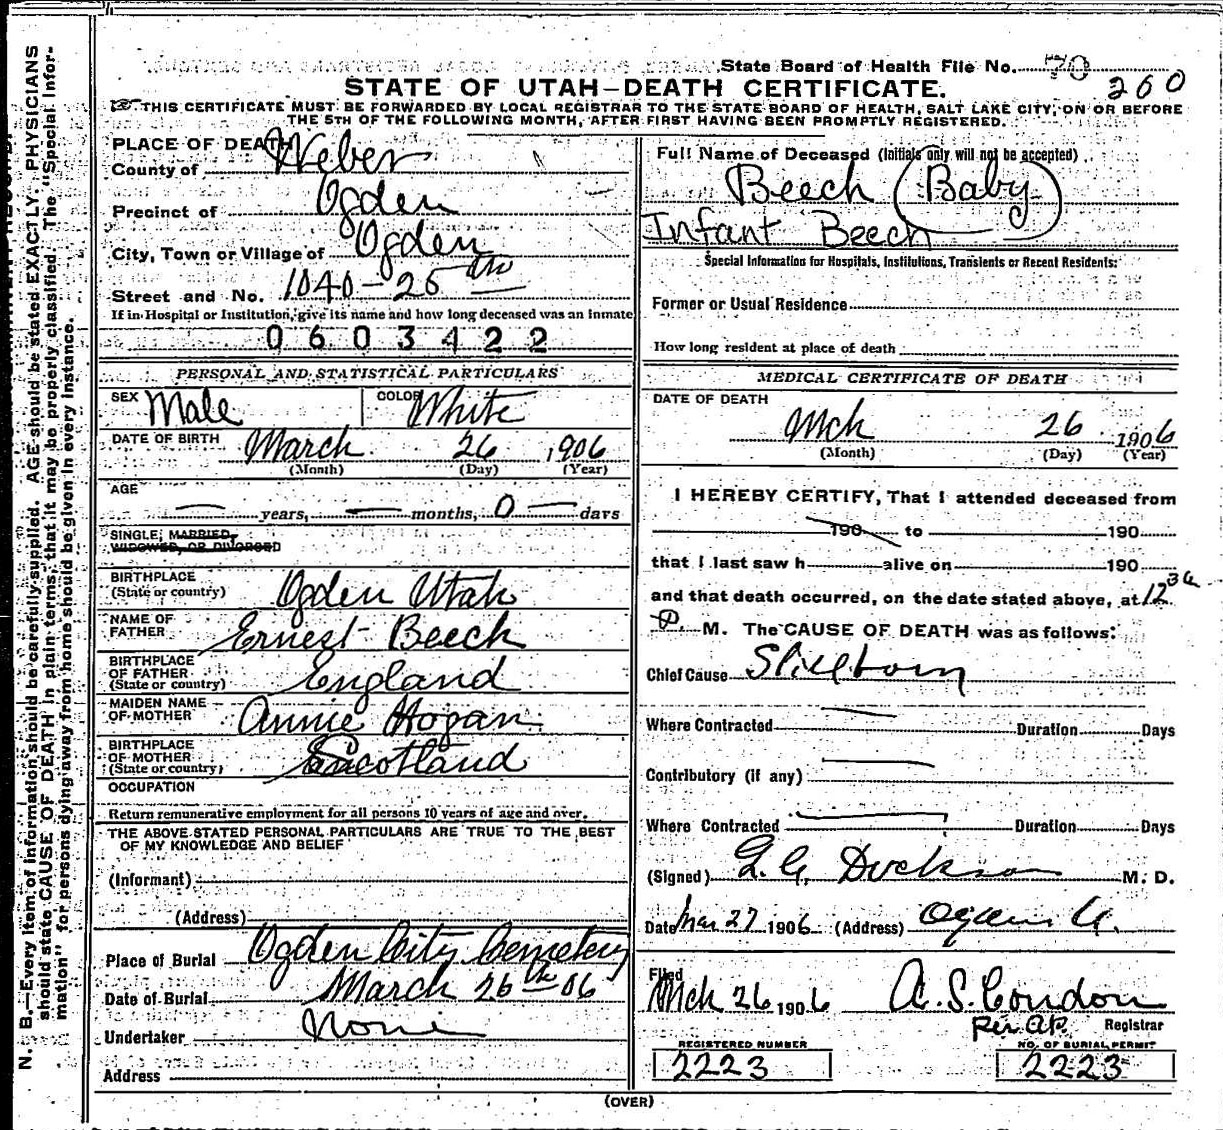 State Board of Health File No. 70
260
STATE OF UTAH—DEATH CERTIFICATE.
THIS CERTIFICATE MUST BE FORWARDED BY LOCAL REGISTRAR TO THE STATE BOARD OF HEALTH, SALT LAKE CITY, ON OR BEFORE
THE 5TH OF THE FOLLOWING MONTH, AFTER FIRST HAVING BEEN PROMPTLY REGISTERED.
N. B.—Every item of information should be carefully supplied. AGE should be stated EXACTLY. PHYSICIANS
should state CAUSE OF DEATH in plain terms, that it may be properly classified. The "Special Infor-
mation" for persons dying away from home should be given in every instance.
PLACE OF DEATH
County of Weber
Precinct of Ogden
City, Town or Village of Ogden
Street and No. 1040-25th
If in Hospital or Institution, give its name and how long deceased was an inmate
0603422
PERSONAL AND STATISTICAL PARTICULARS
SEX Male COLOR White
DATE OF BIRTH March 26 1906
(Month) (Day) (Year)
AGE
— years, — months, 0 — days
SINGLE, MARRIED,
WIDOWED, OR DIVORCED
BIRTHPLACE
(State or country) Ogden Utah
NAME OF
FATHER Ernest Beech
BIRTHPLACE
OF FATHER
(State or country) England
MAIDEN NAME
OF MOTHER Annie Hogan
BIRTHPLACE
OF MOTHER
(State or country) Scotland
OCCUPATION
Return remunerative employment for all persons 10 years of age and over.
THE ABOVE STATED PERSONAL PARTICULARS ARE TRUE TO THE BEST
OF MY KNOWLEDGE AND BELIEF
(Informant)
(Address)
Place of Burial Ogden City Cemetery
Date of Burial March 26th 06
Undertaker None
Address
Full Name of Deceased (Initials only will not be accepted)
Beech (Baby)
Infant Beech
Special Information for Hospitals, Institutions, Transients or Recent Residents:
Former or Usual Residence
How long resident at place of death
MEDICAL CERTIFICATE OF DEATH
DATE OF DEATH
Mch 26 1906
(Month) (Day) (Year)
I HEREBY CERTIFY, That I attended deceased from
190 to 190
that I last saw h alive on 190
and that death occurred, on the date stated above, at 12 30
P. M. The CAUSE OF DEATH was as follows:
Chief Cause Stillborn
Where Contracted — Duration Days
Contributory (if any) —
Where Contracted — Duration Days
(Signed) Dickson M. D.
Date Mar 27 1906 (Address) Ogden U.
Filed
Mch 26 1906 A. S. Condon
Registrar
REGISTERED NUMBER NO. OF BURIAL PERMIT
2223 2223
(OVER)